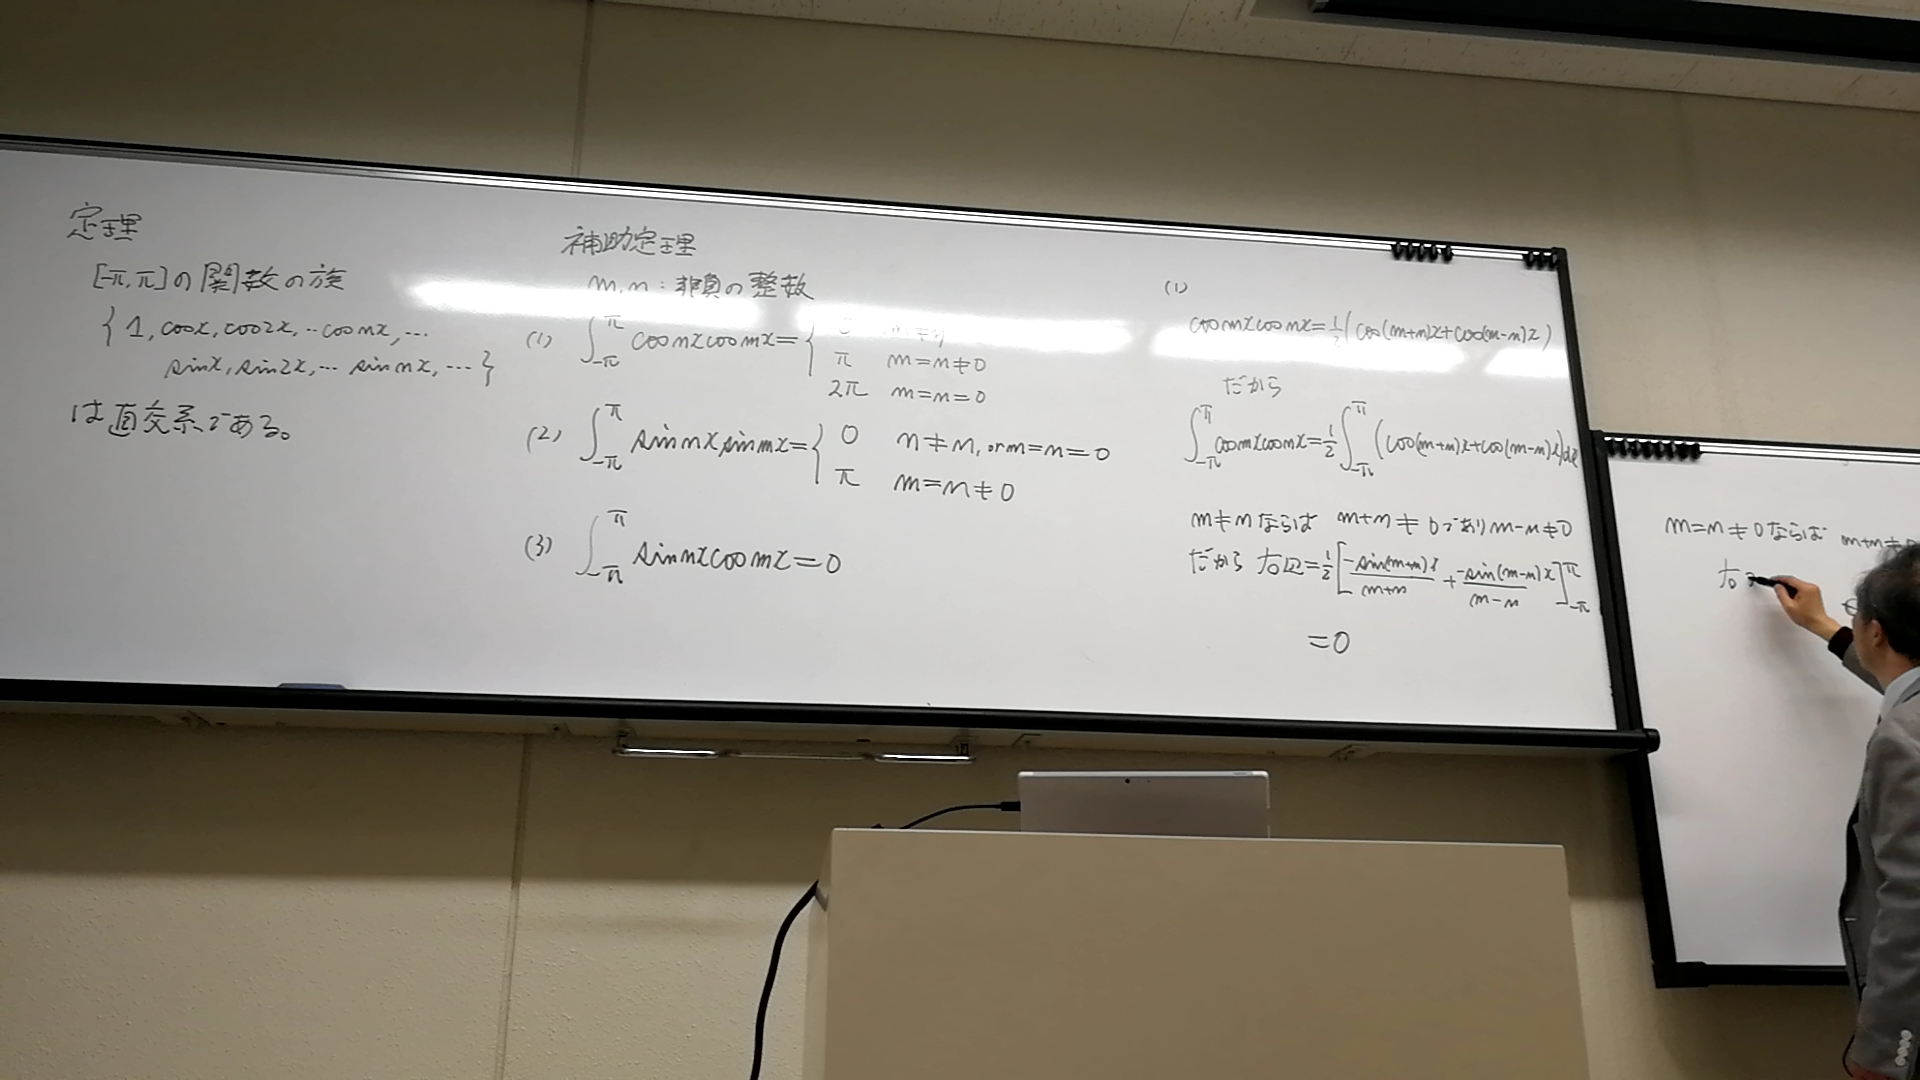 定理
[-π,π]の関数の族
{1, cosx, cos2x, ‥cosnx, …
sinx, sin2x, … sinnx, …}
は直交系である。
補助定理
m,n:非負の整数
(1) ∫_{-π}^{π} cosnxcosmx={ 0 m≠n
π m=n≠0
2π m=n=0
(2) ∫_{-π}^{π} sinnxsinmx={ 0 n≠n, or m=n=0
π m=n≠0
(3) ∫_{-π}^{π} sinnxcosmx=0
(1)
cosmxcosnx=1/2(cos(m+n)x+cos(m-n)x)
だから
∫_{-π}^{π} cosmxcosnx=1/2∫_{-π}^{π}(cos(m+n)x+cos(m-n)x)dx
m≠nならば m+n≠0でありm-n≠0
だから 右辺=1/2[-sin(m+n)x/m+n + -sin(m-n)x/m-n]_{-π}^{π}
=0
m=n≠0ならば m+n≠
右